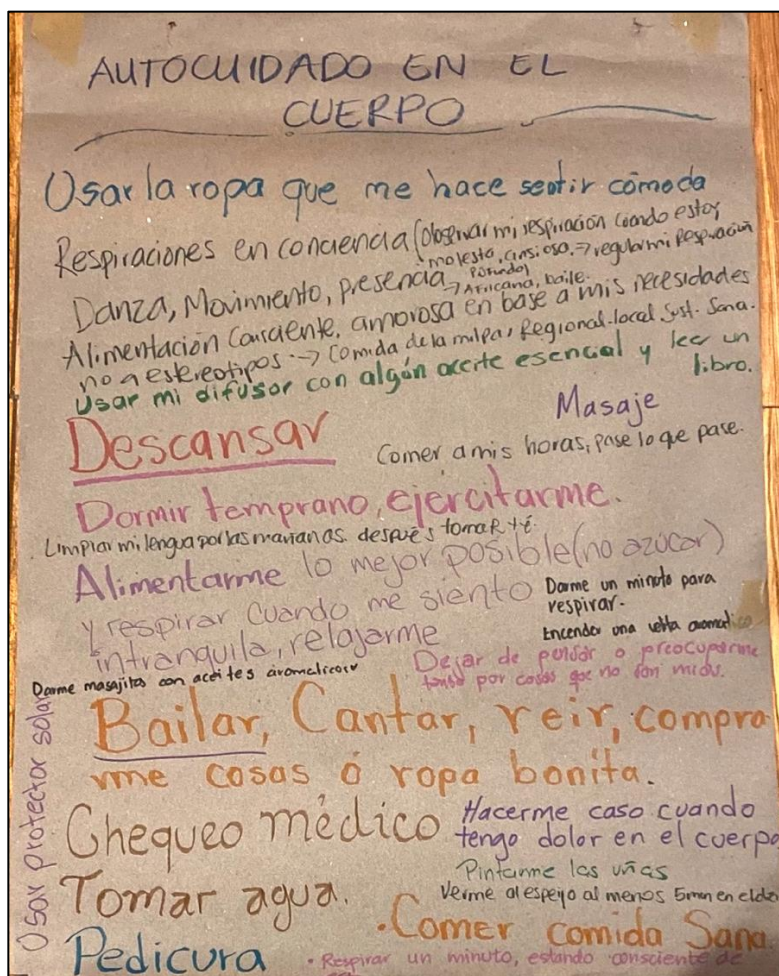 AUTOCUIDADO EN EL
CUERPO
Usar la ropa que me hace sentir cómoda
Respiraciones en conciencia (Observar mi respiración cuando estoy
molesta, ansiosa. → regular mi respiración
Danza, Movimiento, presencia → Africana, baile.
Alimentación Consciente, amorosa en base a mis necesidades
no a estereotipos → Comida de la milpa, Regional-local Sust. Sana.
Usar mi difusor con algún aceite esencial y leer un
libro.
Masaje
Descansar
Comer a mis horas, pase lo que pase.
Dormir temprano, ejercitarme.
Limpiar mi lengua por las mañanas. después tomar té.
Alimentarme lo mejor posible (no azúcar)
y respirar cuando me siento
intranquila, relajarme
Darme un minuto para
respirar.
Encender una aromatica
Dejar de pensar o preocuparme
tanto por cosas que no son mías.
Darme masajitos con aceites aromaticos
Usar protector solar
Bailar, Cantar, reir, compra
rme cosas ó ropa bonita.
Chequeo médico
Hacerme caso cuando
tengo dolor en el cuerpo
Pintarme las uñas
Tomar agua.
Verme al espejo al menos 5min en el día
• Comer comida Sana
Pedicura
• Respirar un minuto, estando consciente de